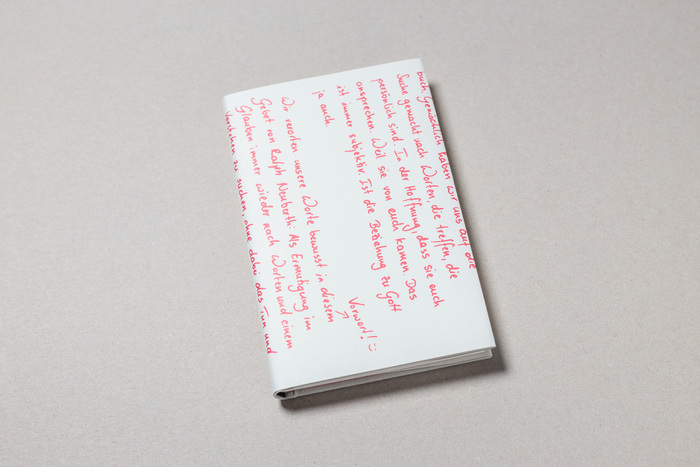 buch Gemächlich haben wir uns auf die
Suche gemacht nach Worten, die treffen, die
persönlich sind. In der Hoffnung, dass sie euch
ansprechen. Weil sie von euch kamen. Das
ist immer subjektiv. Ist die Beziehung zu Gott
ja auch
Vorwort! :)
Wir verorten unsere Worte bewusst in diesem
Gebet von Ralph Neuberth: Als Ermutigung im
Glauben immer wieder nach Worten und einem
zu suchen, ohne dabei das Tun und